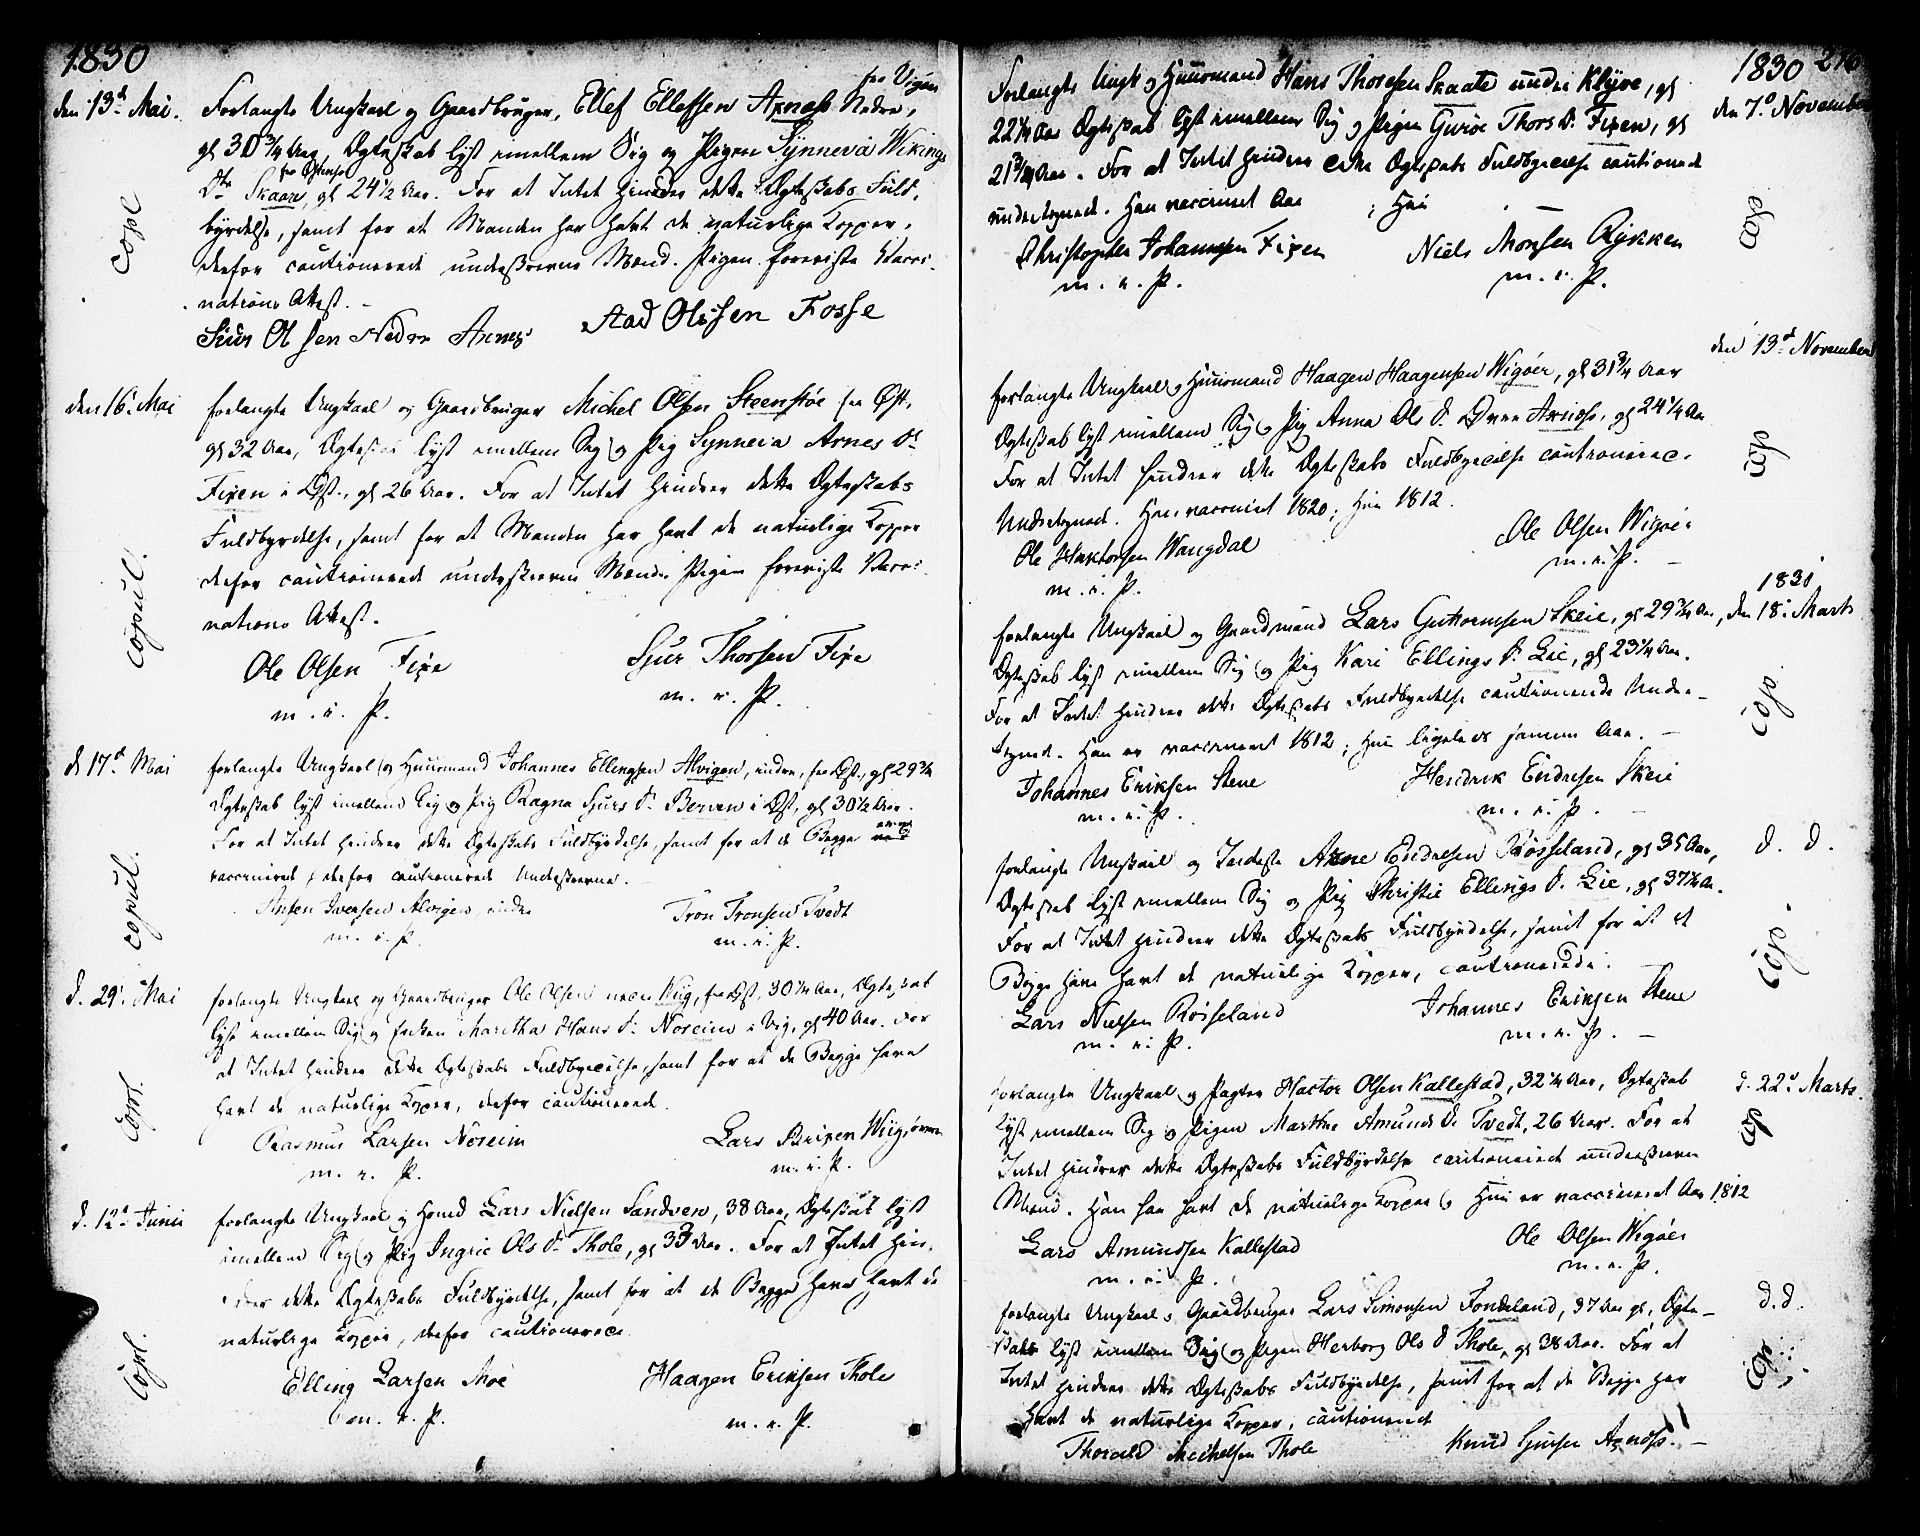 1830
den 13d Mai. Forlangte Ungkarl og Gaardbruger, Ellef Ellefsen Axnæs Nedre, fra Vigøen
gl 30 3/4 Aar, Ægteskab lyst imellem Sig og Pigen Synneva Wikings
Dtr Skaare, fra Østensø gl 24 1/2 Aar. For at Intet hindrer dette Ægteskabs Fuld-
byrdelse, samt for at Manden har havt de naturlige Kopper,
derfor cautionerede underskrevne Mænd. Pigen foreviste Vacci-
nations Attest. -
copl
Siur Olsen Nedre Axnæs Aad Olsen Fosse
den 16. Mai forlangte Ungkarl og Gaardbruger Michel Olsen Steenstøe fra Øst.
gl 32 Aar, Ægteskab lyst imellem Sig og Pig Synneva Arnes Dr
Fixen i Øst., gl 26 Aar. For at Intet hindrer dette Ægteskabs
Fuldbyrdelse, samt for at Manden har havt de naturlige Kopper
derfor cautionerede underskrevne Mænd. Pigen foreviste Vacci-
nations Attest.
copul.
Ole Olsen Fixe Sjur Thorsen Fixe
m. i. P. m. i. P.
d 17d Mai forlangte Ungkarl og Huusmand Johannes Ellingsen Alvigen, indre, fra Øst., gl 29 3/4
Ægteskab lyst imellem Sig og Pig Ragna Sjurs D. Berven i Øst, gl 30 1/2 Aar.
For at Intet hindrer dette Ægteskabs Fuldbyrdelse, samt for at de Begge
vaccinerede, derfor cautionerede Underskrevne.
copul.
Iversen Alvigen, indre Tron Tronsen Tvedt
m. i. P. m. i. P.
d. 29. Mai forlangte Ungkarl og Gaardbruger Ole Olsen Kiig, fra Øst, 30 1/4 Aar, Ægteskab
lyst imellem Sig og Enken Maritha Hans D. Noreim i Vig, gl 40 Aar. For
at Intet hindrer dette Ægteskabs Fuldbyrdelse, samt for at de Begge have
havt de naturlige Kopper, derfor cautionerede.
copl.
Rasmus Larsen Noreim Lars
m. i. P. m. i. P.
d. 12d Junii forlangte Ungkarl og Hmd Lars Nielsen Sandven, 38 Aar, Ægteskab lyst
imellem Sig og Pig Ingrie Ols D. Thole, gl 33 Aar. For at Intet hin-
drer dette Ægteskabs Fuldbyrdelse, samt for at de Begge have havt de
naturlige Kopper, derfor cautionerede
copl.
Elling Larsen Moe Haagen Eriksen Thole
m. i. P. m. i. P.
1830
den 7d November
Forlangte Ungk og Huusmand Hans Thorsen Skaate under Klyve, gl
22 1/4 Aar Ægteskab lyst imellem Sig og Pigen Guroe Thors D. Fixen, gl
21 3/4 Aar. For at Intet hindrer dette Ægteskabs Fuldbyrdelse cautionered
undertegnede. Han vaccineret Aar ; Hun
cop
Christopher Johannesen Fixen Niels Monsen Rykken
m. i. P. m. i. P.
den 13d November
forlangte Ungkarl og Huusmand Haagen Haagensen Wigøer, gl 31 3/4 Aar
Ægteskab lyst imellem Sig og Pig Anna Ols D. Øvre Axnæs, gl 24 1/4 Aar
For at Intet hindrer dette Ægteskabs Fuldbyrdelse cautionered.
Undertegnede. Han vaccineret 1820; Hun 1812.
cop
Ole Haktorsen Wangdal Ole Olsen Wigøer
m. i. P. m. i. P. -
1831
forlangte Ungkarl og Gaardmand Lars Guttormsen Skeie, gl 29 3/4 Aar, den 18. Marts
Ægteskab lyst imellem Sig og Pig Kari Ellings D. Lie, gl 23 1/4 Aar.
For at Intet hindrer dette Ægteskabs Fuldbyrdelse cautionerede Under-
tegned. Han er vaccineret 1812; Hun ligeledes samme Aar. -
cop
Johannes Eriksen Stene Hendrik Endresen Skeie
m. i. P. m. i. P. -
forlangte Ungkarl og Inderste Arne Endresen Røisseland, gl 35 Aar, d. d.
Ægteskab lyst imellem Sig og Pig Christie Ellings D. Lie, gl 37 1/4 A.
For at Intet hindrer dette Ægteskabs Fuldbyrdelse, samt for at at
Begge have havt de naturlige Kopper, cautionerede.
cop
Lars Nielsen Roisseland Johannes Eriksen Stene
m. i. P. m. i. P. -
forlangte Ungkarl og Pagter Hactor Olsen Kallestad, 32 1/4 Aar, Ægteskab d. 22d Marts.
lyst imellem Sig og Pigen Marthe Amunds D. Tvedt, 26 Aar. For at
Intet hindrer dette Ægteskabs Fuldbyrdelse cautionered underskrevne
Mænd. Han har havt de naturlige Kopper og Hun er vaccineret Aar 1812
cop
Lars Amundsen Kallestad Ole Olsen Wigøer
m. i. P. m. i. P.
forlangte Ungkarl og Gaardbruger Lars Simonsen Fondeland, 37 Aar gl, Ægte- d. d.
skab lyst imellem Sig og Pigen Herborg Ols D Thole, gl 38 Aar. For at
Intet hindrer dette Ægteskabs Fuldbyrdelse, samt for at de Begge har
havt de naturlige Kopper, cautionered
cop
Thorald Mikkelsen Thole Knud Sjursen Axnæs. -